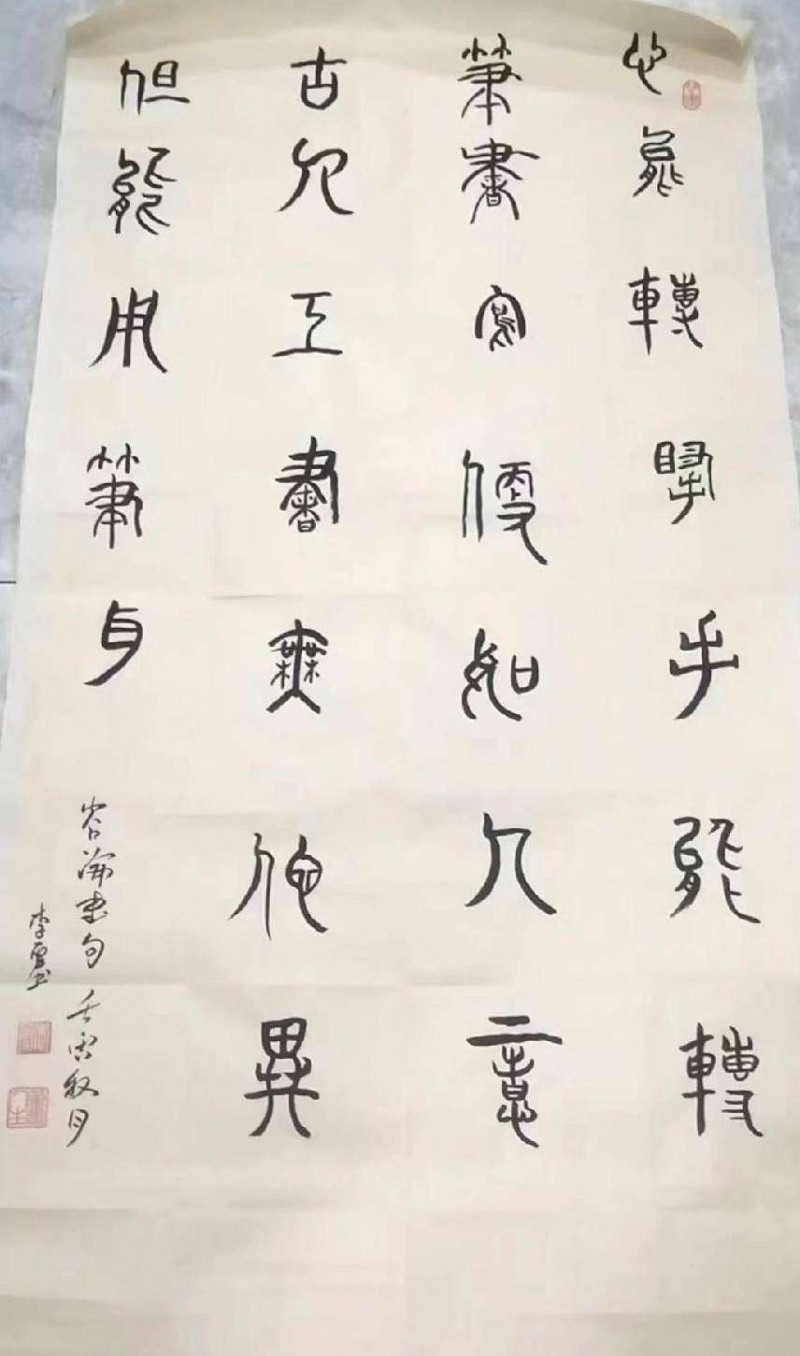 心能轉腕手能轉
筆書寫便如人意
古人工書無他異
但能用筆耳
山谷論書句 壬寅秋月
李